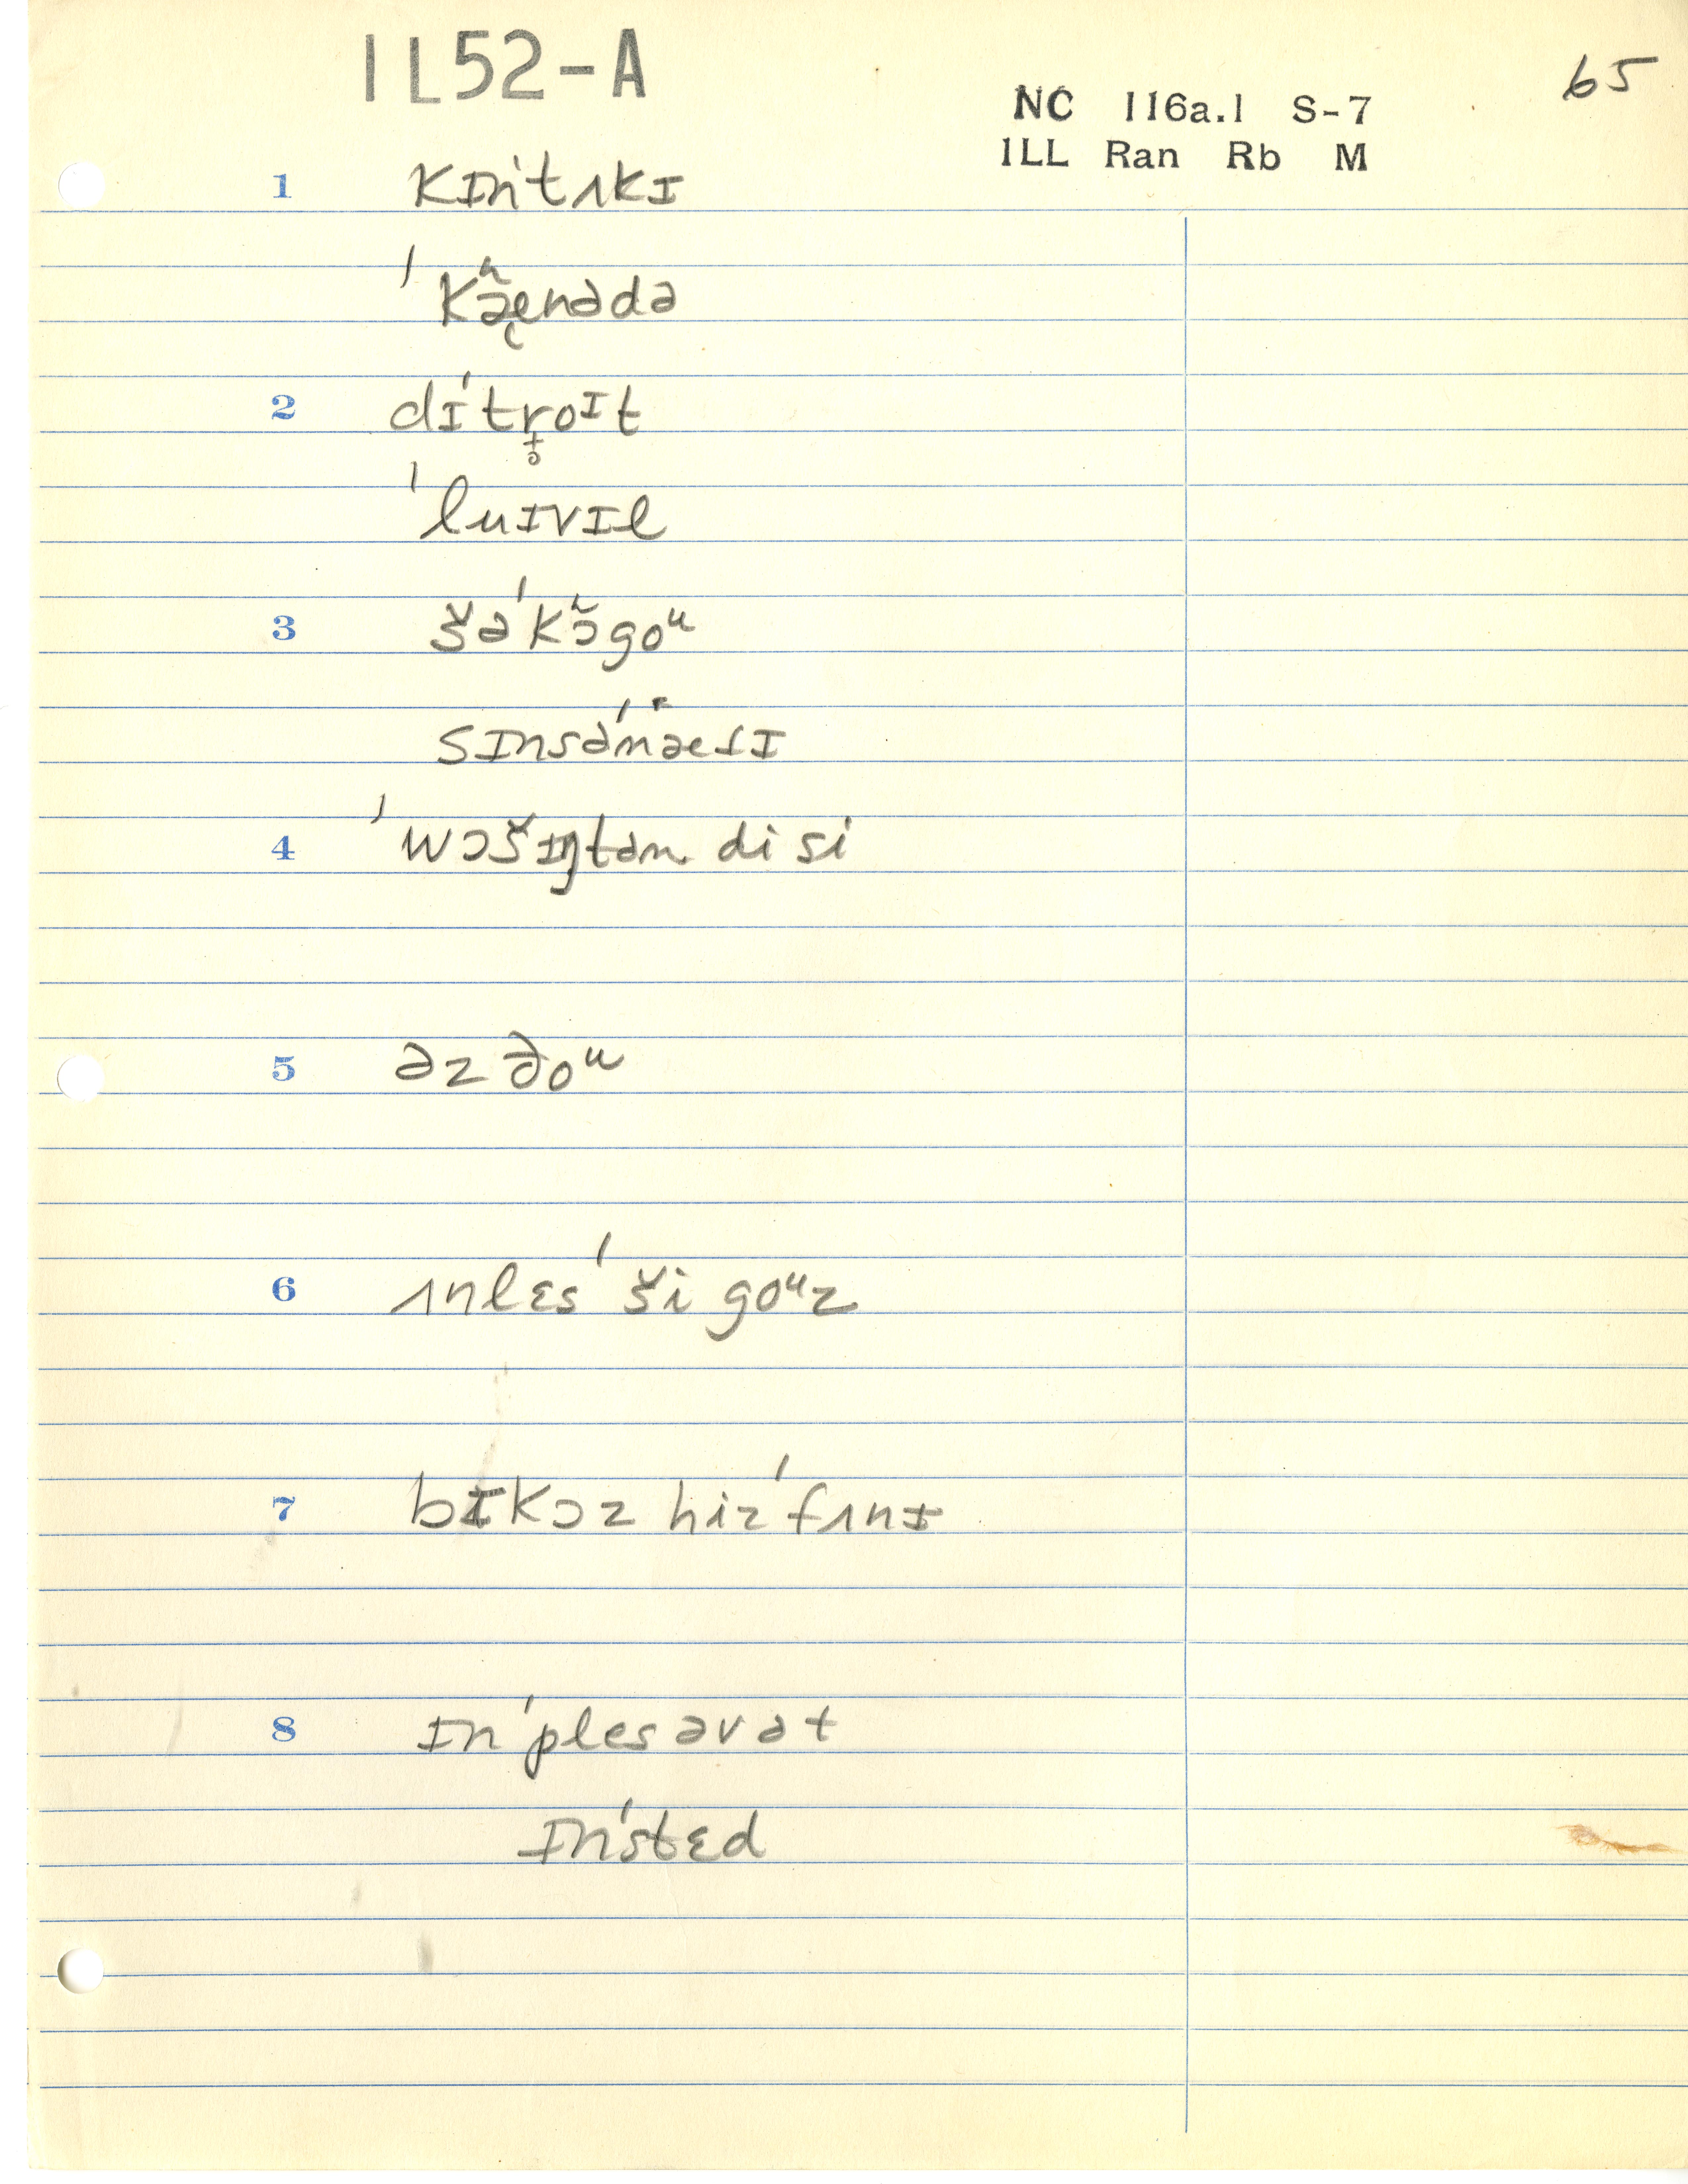 1L52-A
65
NC 116a.1 S-7
ILL Ran Rb M
1 kɪnˈtʌkɪ
ˈkæ̃nədə
2 dɪˈtr̥oɪt
ˈluɪvɪl
3 šəˈkɔ̃goᵘ
sɪnsəˈnæsɪ
4 ˈwɔšɪŋtən di si
5 əz ðoᵘ
6 ʌnlɛsˈ ši goᵘz
7 bɪkɔz hizˈfʌnɪ
8 ɪnˈples əv ət
ɪnˈstɛd